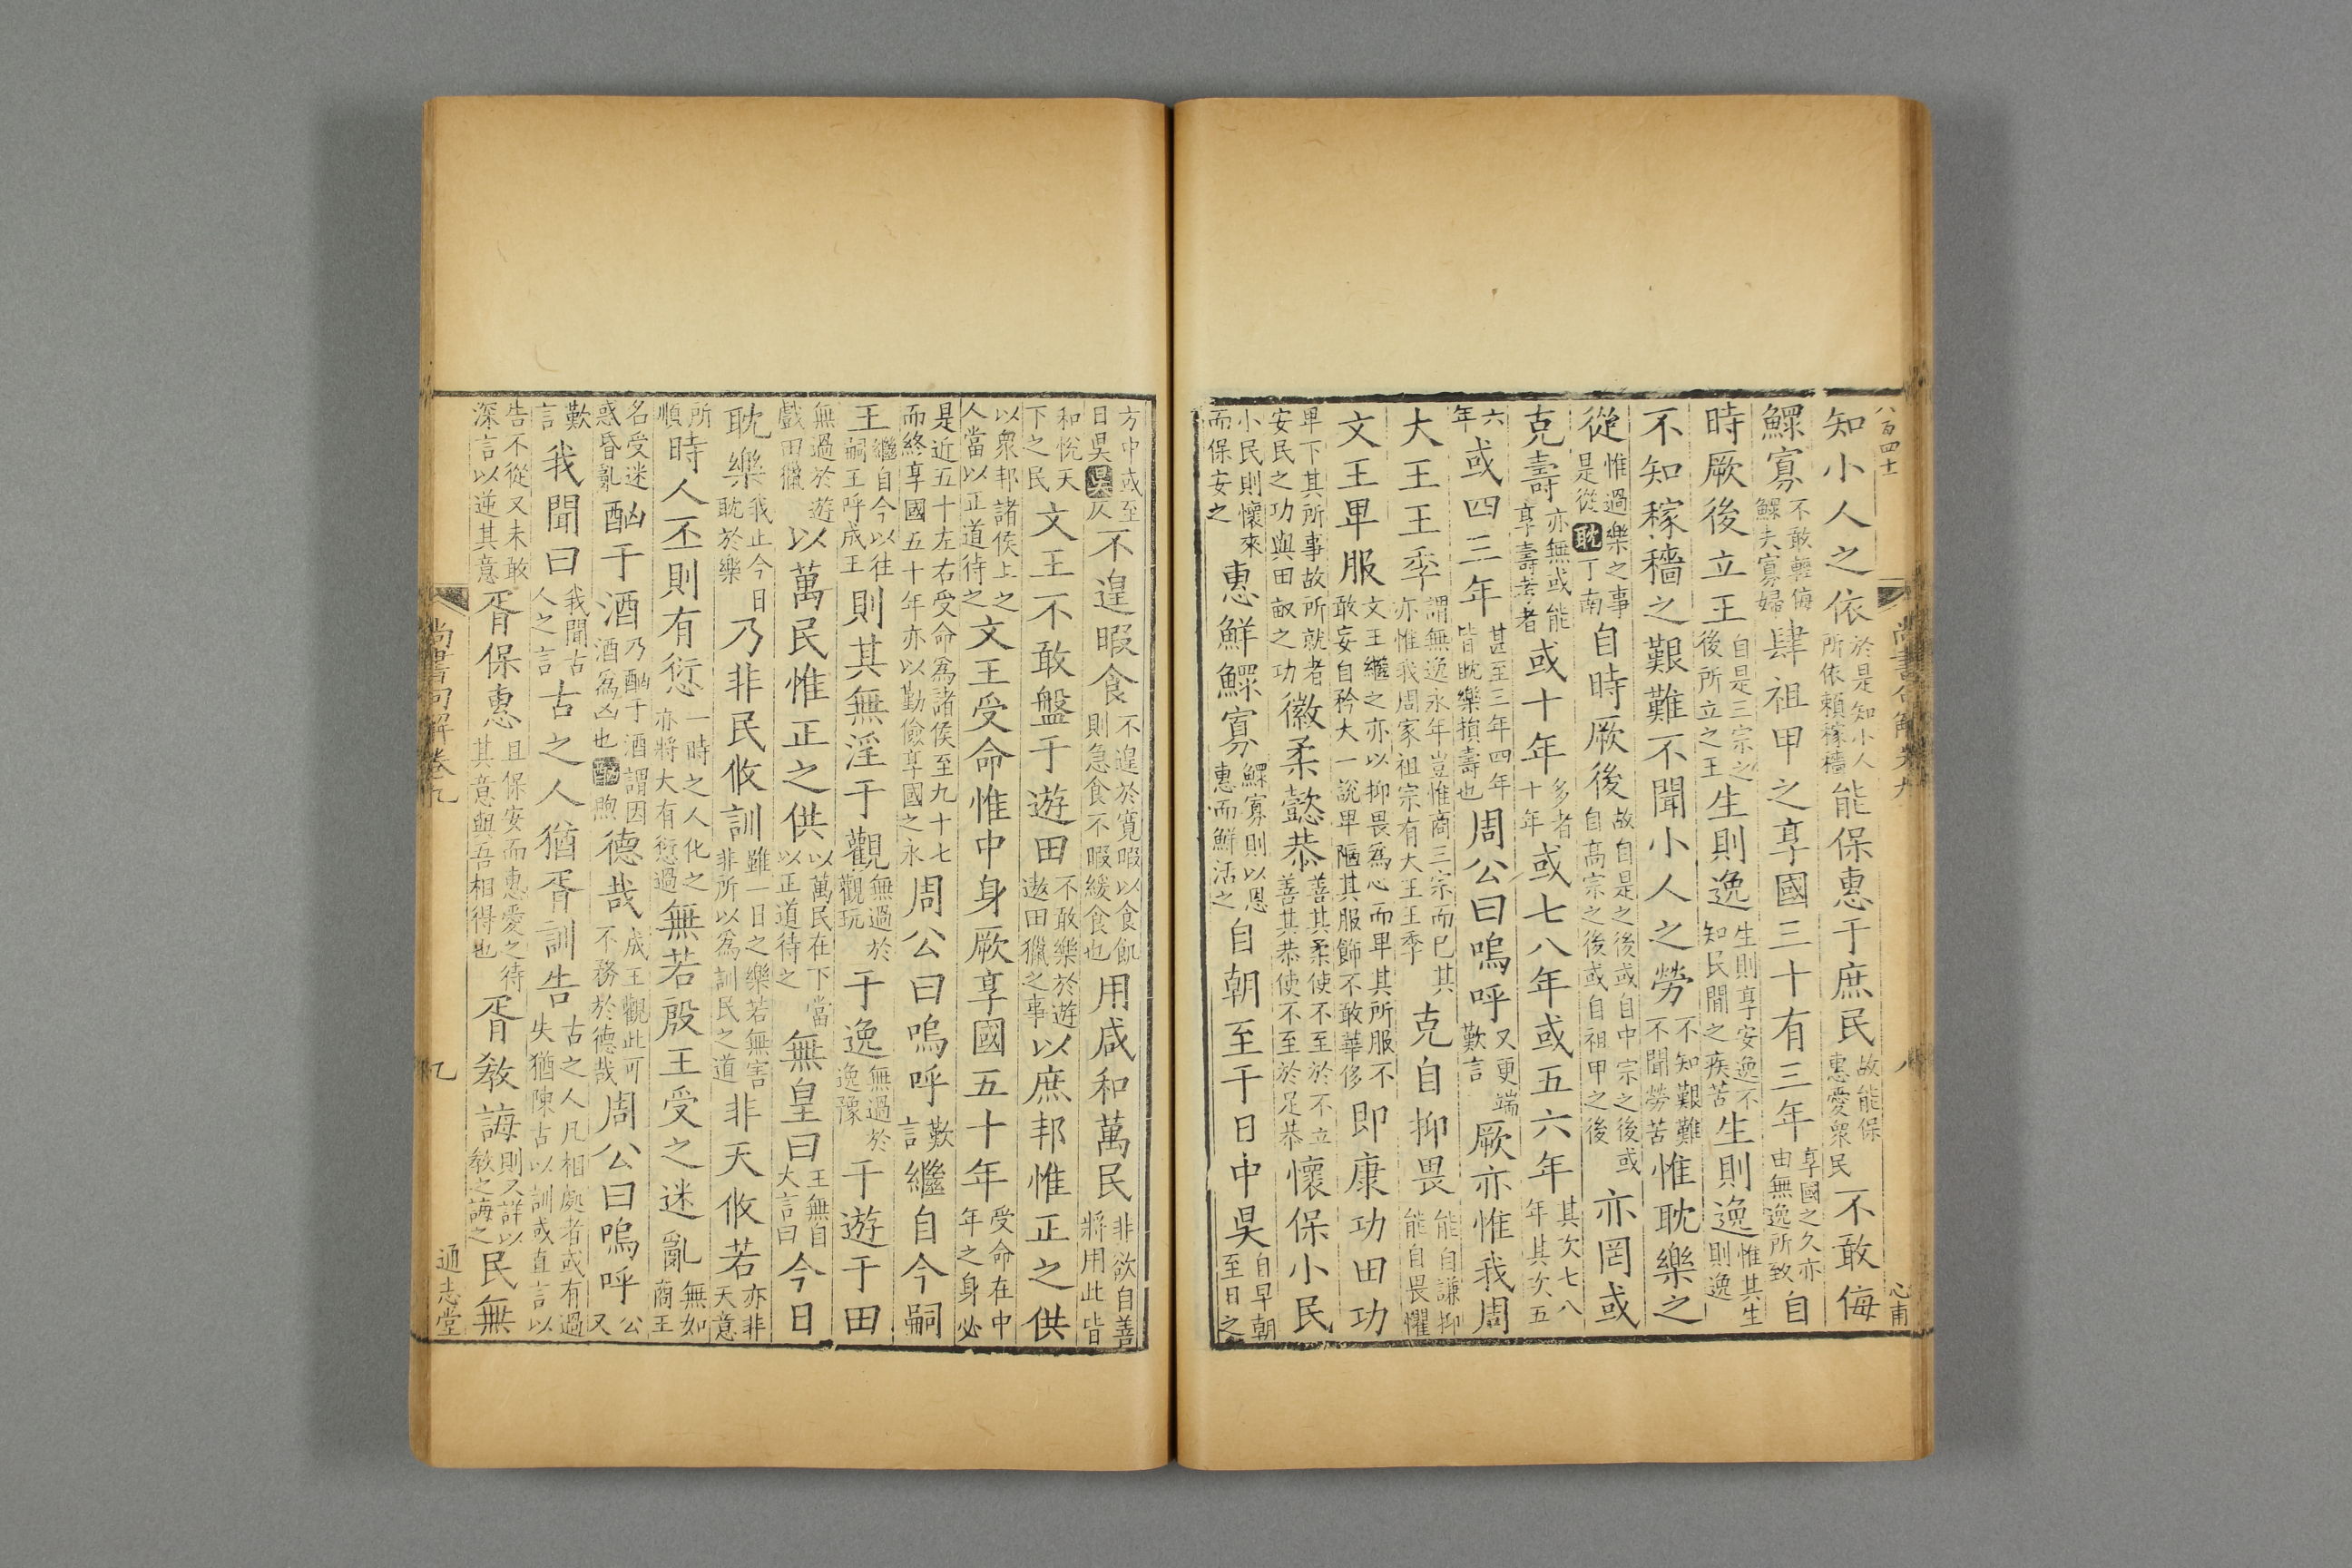 八百四十
尚書句解卷九
八
心甫
知小人之依於是知小人所依賴稼穡能保惠于庶民故能保惠愛衆民不敢侮
鰥寡不敢輕侮鰥夫寡婦肆祖甲之享國三十有三年享國之久亦由無逸所致自
時厥後立王自是三宗之後所立之王生則逸生則享安逸不知民間之疾苦生則逸惟其生則逸
不知稼穡之艱難不聞小人之勞不知艱難不聞勞苦惟耽樂之
從惟過樂之事是從耽丁南自時厥後故自是之後或自中宗之後或自高宗之後或自祖甲之後亦罔或
克壽亦無或能享壽考者或十年多者十年或七八年或五六年其次七八年其次五
六年或四三年甚至三年四年皆耽樂損壽也周公曰嗚呼又更端歎言厥亦惟我周
大王王季謂無逸永年豈惟商三宗而已其亦惟我周家祖宗有大王王季克自抑畏能自謙抑能自畏懼
文王卑服文王繼之亦以抑畏爲心而卑其所服不敢妄自矜大一說卑陋其服飾不敢華侈即康功田功
卑下其所事故所就者安民之功與田畝之功徽柔懿恭善其柔使不至於不立善其恭使不至於足恭懷保小民
小民則懷來而保安之惠鮮鰥寡鰥寡則以恩惠而鮮活之自朝至于日中昃自早朝至日之
方中或至日昃昃仄不遑暇食不遑於寬暇以食飢則急食不暇緩食也用咸和萬民非欲自善將用此皆
和悅天下之民文王不敢盤于遊田不敢樂於遊遨田獵之事以庶邦惟正之供
以衆邦諸侯上之人當以正道待之文王受命惟中身厥享國五十年受命在中年之身必
是近五十左右受命爲諸侯至九十七而終享國五十年亦以勤儉享國之永周公曰嗚呼歎言繼自今嗣
王繼自今以往嗣王呼成王則其無淫于觀無過於觀玩于逸無過於逸豫于遊于田
無過於遊戲田獵以萬民惟正之供以萬民在下當以正道待之無皇曰王無自大言曰今日
耽樂我止今日耽於樂乃非民攸訓雖一日之樂若無害非所以爲訓民之道非天攸若亦非天意
所順時人丕則有愆一時之人化之亦將大有愆過無若殷王受之迷亂無如商王
名受迷惑昏亂酗于酒乃酗于酒謂因酒爲凶也酗煦德哉成王觀此可不務於德哉周公曰嗚呼公又
歎言我聞曰我聞古人之言古之人猶胥訓告古之人凡相處者或有過失猶陳古以訓或直言以
告不從又未敢深言以逆其意胥保惠且保安而惠愛之待其意與吾相得也胥教誨則又詳以教之誨之民無
尚書句解卷九
九
通志堂